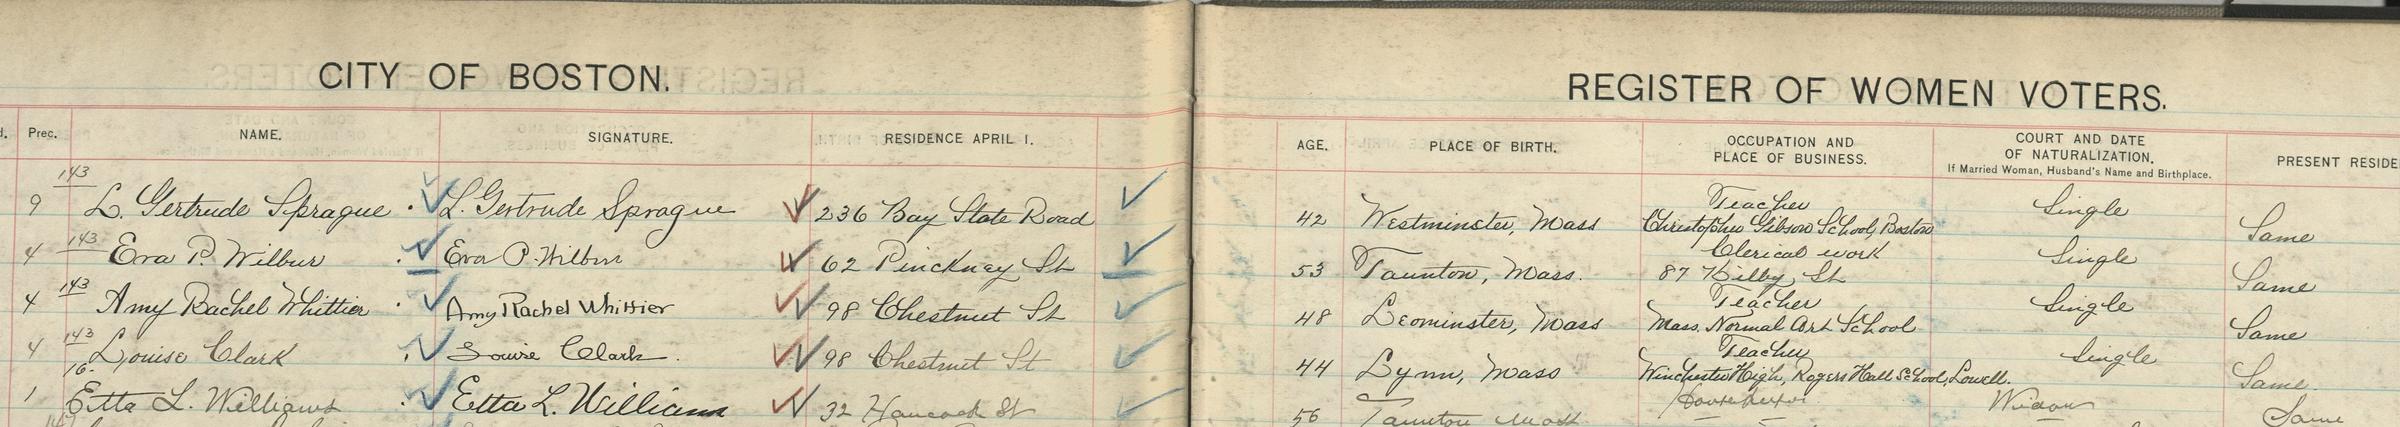 CITY OF BOSTON. REGISTER OF WOMEN VOTERS.
Prec. NAME. SIGNATURE. RESIDENCE APRIL 1. AGE. PLACE OF BIRTH. OCCUPATION AND PLACE OF BUSINESS. COURT AND DATE OF NATURALIZATION. If Married Woman, Husband's Name and Birthplace. PRESENT RESIDE
143
9 L. Gertrude Sprague L. Gertrude Sprague 236 Bay State Road 42 Westminster, Mass Teacher Christopher Gibson School, Boston Single Same
143
4 Eva P. Wilbur Eva P. Wilbur 62 Pinckney St 53 Taunton, Mass. Clerical work 87 Kilby St Single Same
143
4 Amy Rachel Whittier Amy Rachel Whittier 98 Chestnut St 48 Leominster, Mass Teacher Mass. Normal Art School Single Same
143
4 Louise Clark Louise Clark. 98 Chestnut St 44 Lynn, Mass Teacher Winchester High, Rogers Hall School, Lowell. Single Same
16.
1 Etta L. Williams Etta L. Williams 32 Hancock St 56 Taunton Mass Widow Same